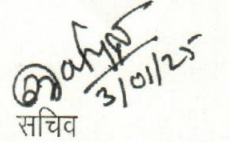 3/01/25
सचिव